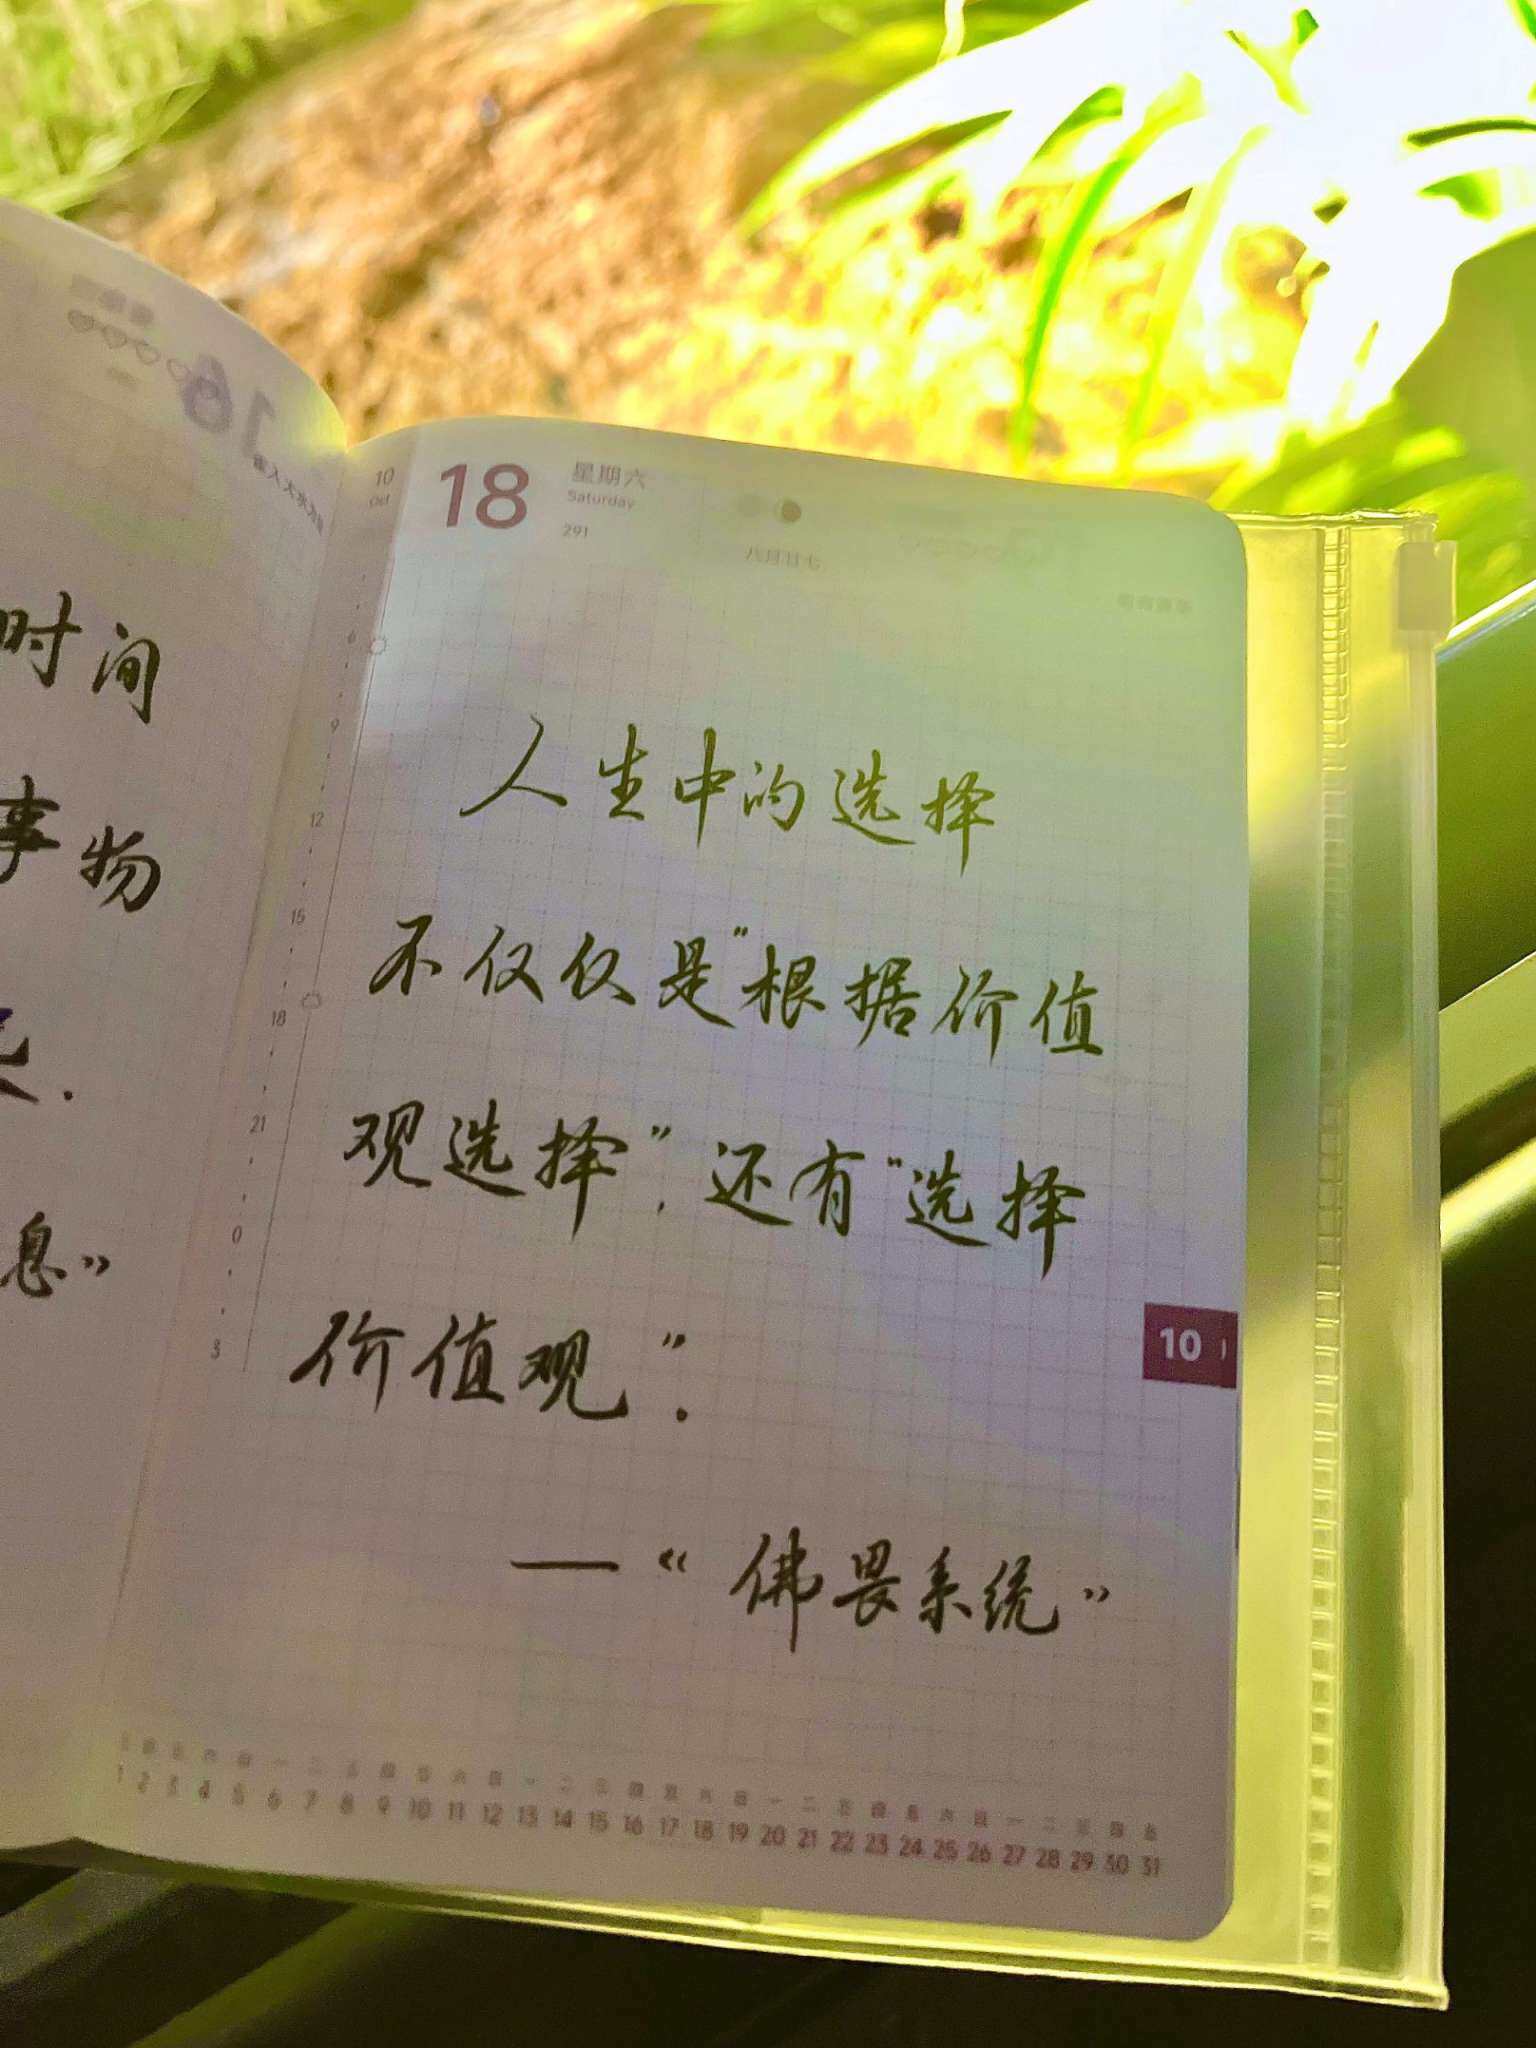 时间
事物
息》
16
10
Oct
18
星期六
Saturday
291
八月廿七
6
9
12
15
18
21
0
3
人生中的选择
不仅仅是“根据价值
观选择”,还有“选择
价值观”.
—《佛畏系统》
10
1 2 3 4 5 6 7 8 9 10 11 12 13 14 15 16 17 18 19 20 21 22 23 24 25 26 27 28 29 30 31